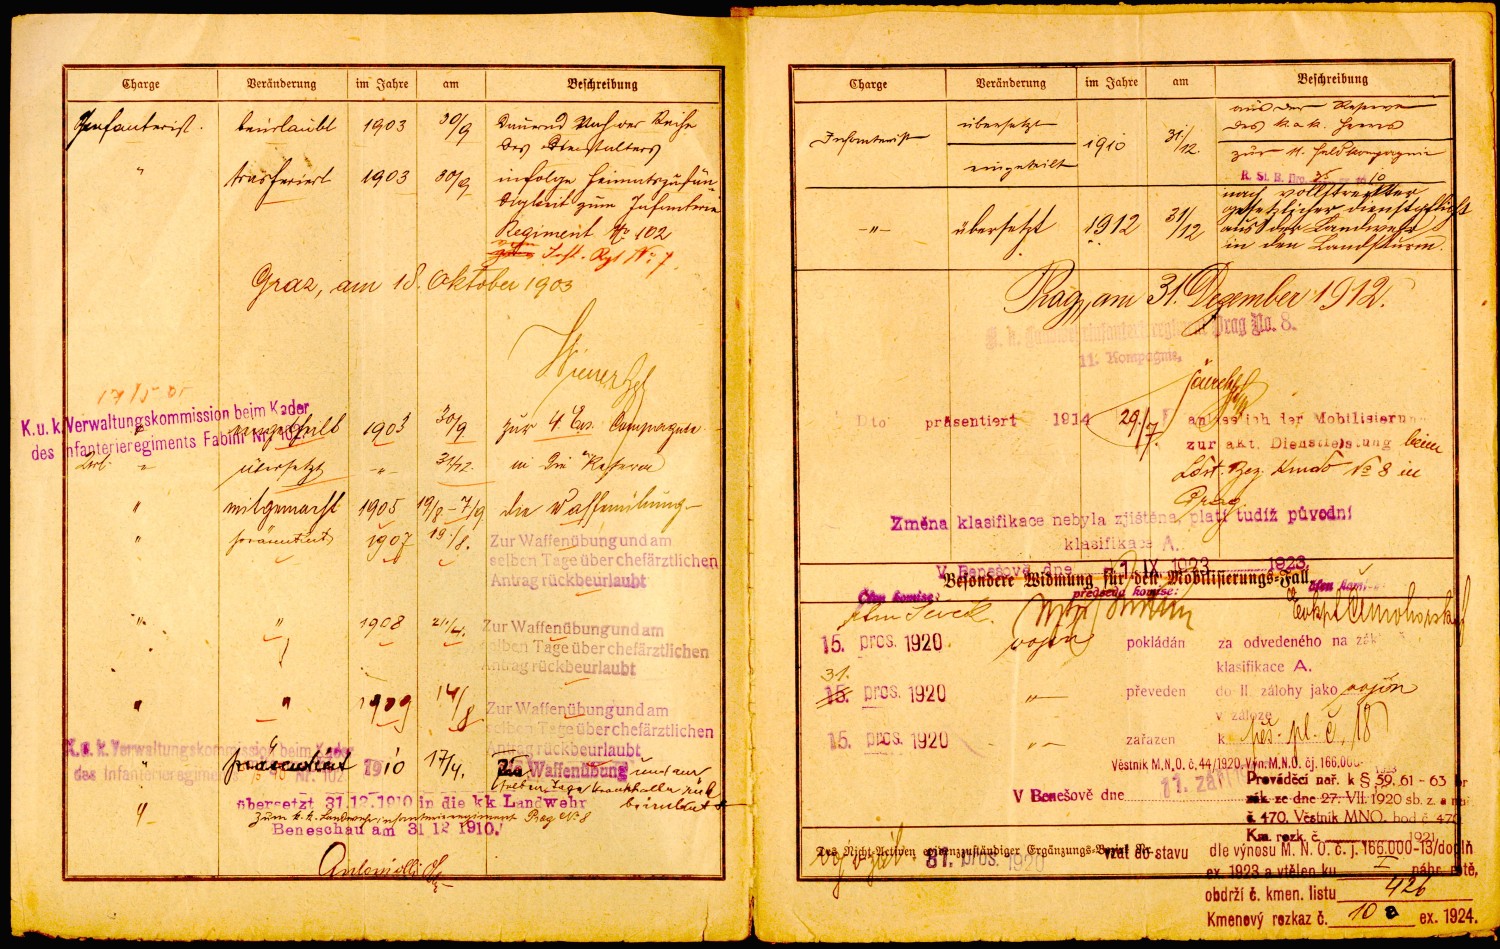 Charge Veränderung im Jahre am Beschreibung
Infanterist. beurlaubt 1903 30/9 dauernd Nach der Reihe
des
" trasferiert 1903 30/9 infolge Heimatszustän-
digkeit zum Infanterie
Regiment № 102
Inft. Rgt № 7
Graz, am 18. Oktober 1903
17/5 05
K.u.k. Verwaltungskommission beim Kader
des Infanterieregiments Fabini Nr. 102
1903 30/9 zur 4 Ers. Compagnie
" übersetzt -"- 31/12. in die Reserve
" mitgemacht 1905 19/8.–7/9 die Waffenübung
" präsentiert 1907 19./8. Zur Waffenübung und am
selben Tage über chefärztlichen
Antrag rückbeurlaubt
" " 1908 21./4. Zur Waffenübung und am
selben Tage über chefärztlichen
Antrag rückbeurlaubt
" " 1909 14/8 Zur Waffenübung und am
selben Tage über chefärztlichen
Antrag rückbeurlaubt
K.u.k. Verwaltungskommission beim Kader
des Infanterieregiments Nr. 102
" präsentiert 1910 17/4. Waffenübung und am
selben Tage krankheitshalber rück
beurlaubt
" übersetzt 31.12.1910 in die kk Landwehr
zum k.k. Landwehrinfanterieregiment Prag № 8
Beneschau am 31 12 1910.
Charge Veränderung im Jahre am Beschreibung
Infanterist übersetzt 1910 31/12. aus der Reserve
des k.u.k. Heeres
eingeteilt zur 11 Feldkompagnie
-"- übersetzt 1912 31/12 nach vollstreckter
gesetzlicher Dienstpflicht
aus der Landwehr
in den Landsturm.
Prag, am 31. Dezember 1912.
K. k. Landwehrinfanterieregiment Prag No. 8.
11. Kompagnie.
Dto präsentiert 1914 29./7. anlässlich der Mobilisierung
zur akt. Dienstleistung beim
Ldst. Bez. Kmdo № 8 in
Prag
Změna klasifikace nebyla zjištěna, platí tudíž původní
klasifikace A.
V Benešově dne 1/IX 1923 1923.
Besondere Widmung für den Mobilisierungs-Fall
Člen komise: předseda komise: člen komise:
15. pros. 1920 vojín pokládán za odvedeného na zákl.
klasifikace A.
31.
15. pros. 1920 -"- převeden do II. zálohy jako vojín
v záloze
15. pros. 1920 -"- zařazen k pěš. pl. č. 18
Věstník M.N.O. č. 44/1920, Výn. M.N.O. čj. 166.000-
11. září
Prováděcí nař. k § 59. 61 - 63 br
V Benešově dne zák ze dne 27. VII. 1920 sb. z. a nař.
č. 470. Věstník MNO. bod č. 470
Km. rozk. č. 1921
Des Nicht-Aktiven evidenzzuständiger Ergänzungs-Bezirk Nr.
31. pros. 1920 vzat do stavu dle výnosu M. N. O. č. j. 166.000-13/doplň
ex. 1923 a vtělen ku I náhr. rotě,
obdrží č. kmen. listu 426
Kmenový rozkaz č. 10 a ex. 1924.